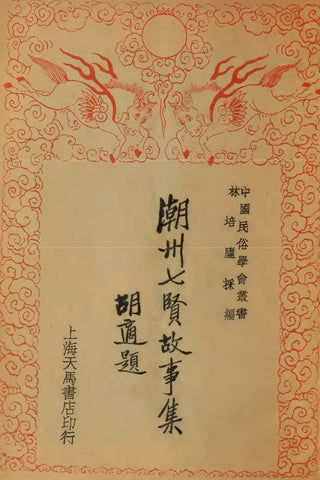 中國民俗學會叢書
林培廬採編
潮州七賢故事集
胡適題
上海天馬書店印行